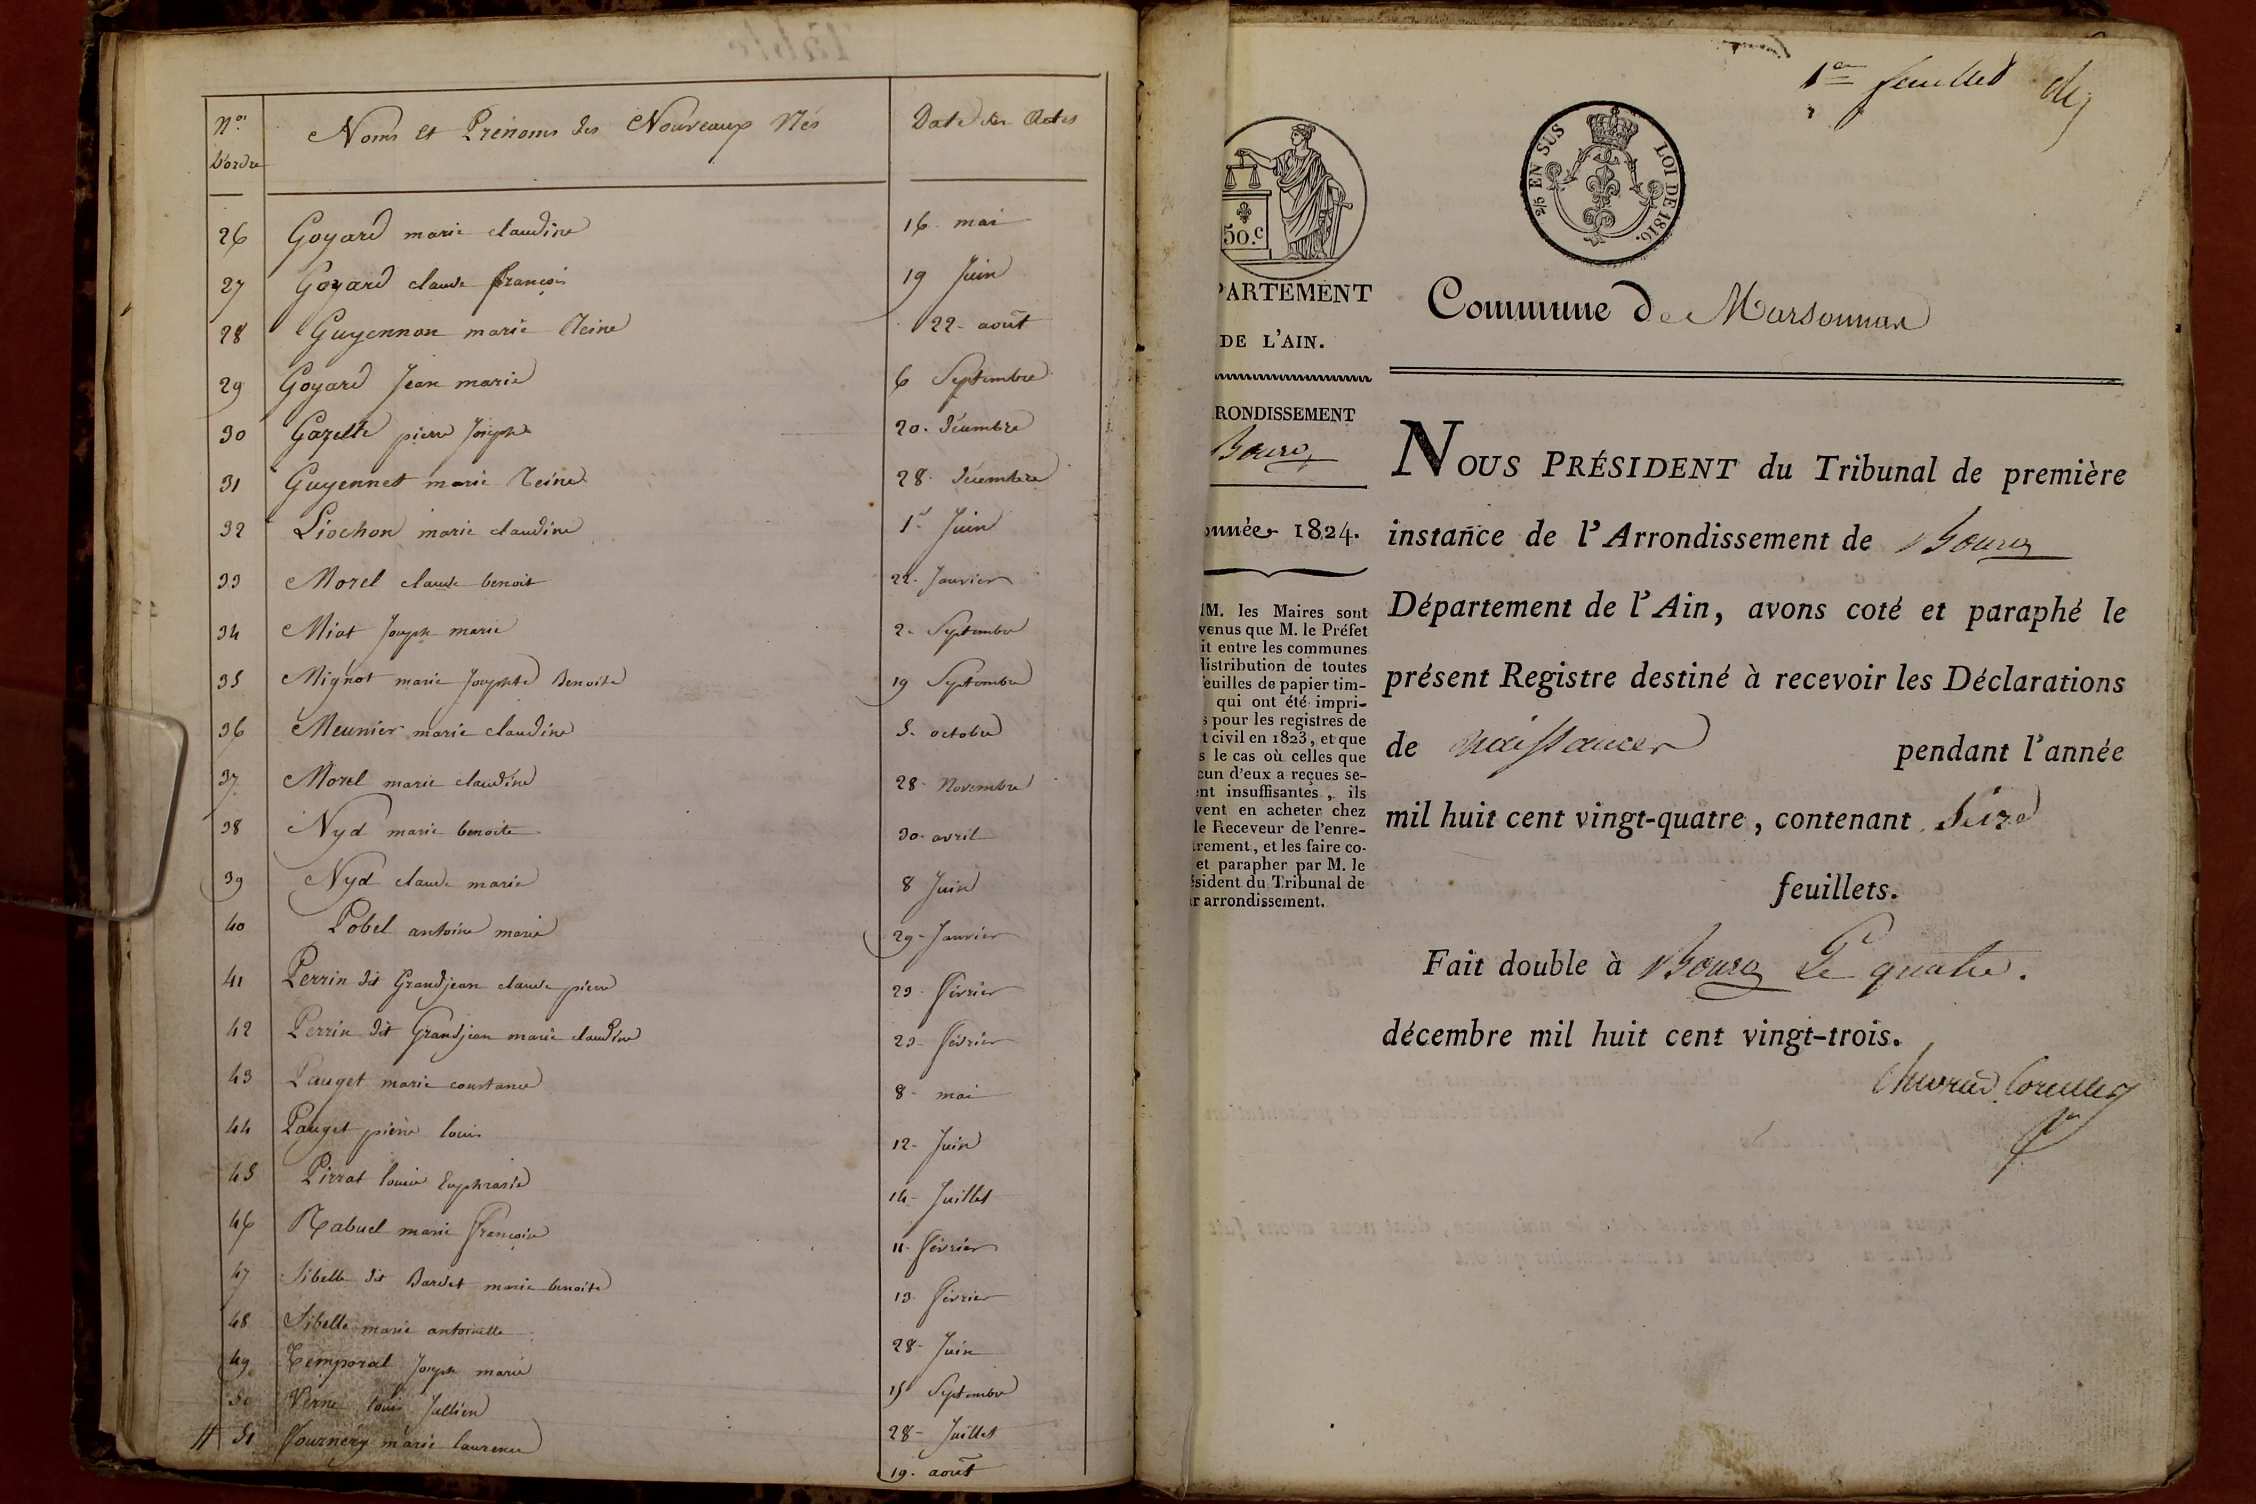 Nos D'ordre Noms et Prénoms des Nouveaux Nés Date des Actes
26 Goyard marie claudine 16. mai
27 Goyard claude françois 19 Juin
28 Guyennon marie Reine 22 - août
29 Goyard Jean marie 6 Septembre
30 Gazelle pierre Joseph 20. décembre
31 Guyennet marie Reine 28. décembre
32 Liochon marie claudine 1er Juin
33 Morel claude benoit 22. Janvier
34 Miat Joseph marie 2. Septembre
35 Mignot marie Josephte Benoite 19 Septembre
36 Meunier marie claudine 5. octobre
37 Morel marie claudine 28. Novembre
38 Nyd marie benoite 30. avril
39 Nyd claude marie 8 Juin
40 Pobel antoine marie 29 - Janvier
41 Perrin dit Grandjean claude pierre 23. février
42 Perrin dit Grandjean marie claudine 23. février
43 Pauget marie constance 8 - mai
44 Pauget pierre louis 12. Juin
45 Pirrat louise Euphrasie 14 - Juillet
46 Rabuel marie françoise 11. février
47 Sibelle dit Bardet marie benoite 13. février
48 Sibelle marie antoinette 28 - Juin
49 Temporal Joseph marie 15 Septembre
50 Verne louis Jullien 28 - Juillet
51 Fournery marie laurence 19. août
1er feuillet
50.c
2/5 EN SUS LOI DE 1816.
PARTEMENT
DE L'AIN.
RRONDISSEMENT
Bourg
onnée 1824.
M. les Maires sont
venus que M. le Préfet
it entre les communes
distribution de toutes
feuilles de papier tim-
qui ont été impri-
s pour les registres de
t civil en 1823, et que
s le cas où celles que
cun d'eux a reçues se-
ent insuffisantes, ils
vent en acheter chez
le Receveur de l'enre-
rement, et les faire co-
et parapher par M. le
ésident du Tribunal de
r arrondissement.
Commune de Marsonnax
NOUS PRÉSIDENT du Tribunal de première
instance de l'Arrondissement de Bourg
Département de l'Ain, avons coté et paraphé le
présent Registre destiné à recevoir les Déclarations
de naissances pendant l'année
mil huit cent vingt-quatre, contenant Seize
feuillets.
Fait double à Bourg Le quatre.
décembre mil huit cent vingt-trois.